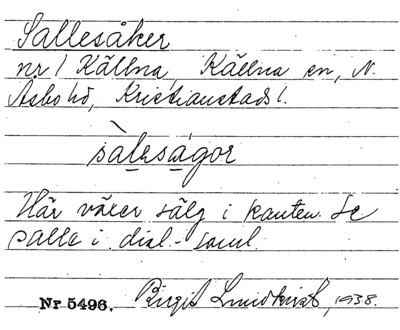 Sallesåker
nr 1 Källna, Källna sn, N.
Åsbo hd, Kristianstads l.
sàlesagor
Här växer sälg i kanten. Se
salle i dial.-saml.
Nr 5496. Birgit Lundkvist, 1938.